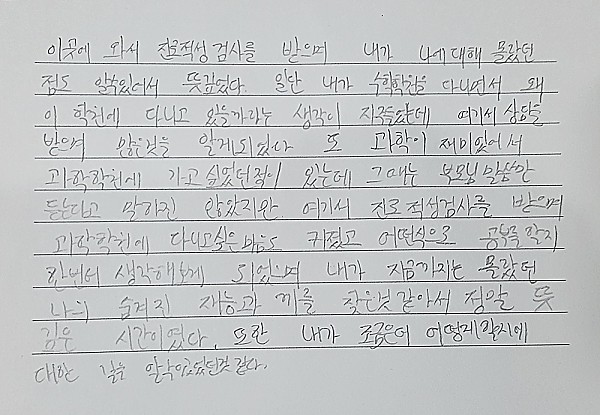 이곳에 와서 진로적성 검사를 받으며 내가 나에대해 몰랐던
점도 알수있어서 뜻깊었다. 일단 내가 수학학원을 다니면서 왜
이 학원에 다니고 있을까라는 생각이 지속됐는데 여기서 상담을
받으며 많은것을 알게되었다 또 과학이 재미있어서
과학학원에 가고싶었던적이 있는데 그때는 부모님 말씀만
듣는다고 말하진 않았지만 여기서 진로적성검사를 받으며
과학학원에 다니고싶은 마음도 커졌고 어떤식으로 공부를 할지
한번더 생각해보게 되었으며 내가 지금까지는 몰랐던
나의 숨겨진 재능과 끼를 찾은것 같아서 정말 뜻
깊은 시간이였다. 또한 내가 조금은더 어떻게할지에
대한 길을 알수있었던것 같다.